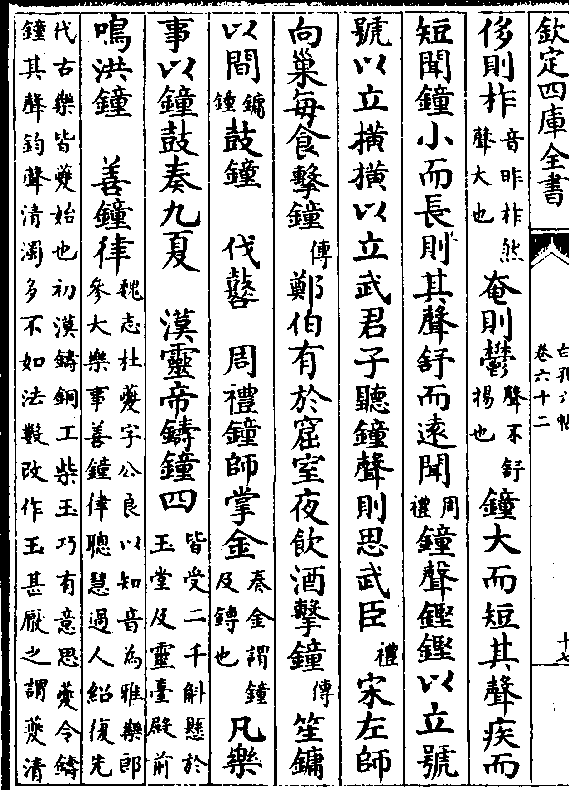 欽定四庫全書
白孔六帖
卷六十二
十七
侈則柞音昨柞然聲大也 奄則鬱聲不舒揚也 鐘大而短其聲疾而
短聞鐘小而長則其聲舒而遠聞周禮 鐘聲鏗鏗以立號
號以立橫橫以立武君子聽鐘聲則思武臣禮 宋左師
向巢每食擊鐘傳 鄭伯有於窟室夜飲酒擊鐘傳 笙鏞
以間鏞鍾 鼓鐘 伐鼛 周禮鐘師掌金奏金謂鐘及鎛也 凡樂
事以鐘鼓奏九夏 漢靈帝鑄鐘四皆受二千斛懸於玉堂及靈臺殿前
鳴洪鐘 善鐘律魏志杜夔字公良以知音為雅樂郎參大樂事善鐘律聰慧過人紹復先
代古樂皆夔始也初漢鑄鍾工柴玉巧有意思夔令鑄
鐘其聲鈞聲清濁多不如法數改作玉甚厭之謂夔清